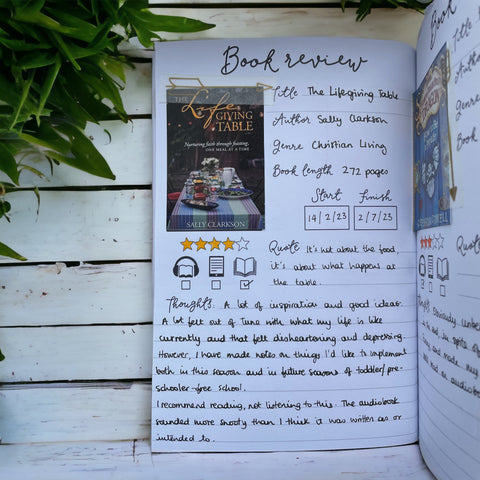 Book review
THE
Life
GIVING
TABLE
Nurturing faith through feasting,
ONE MEAL AT A TIME
SALLY CLARKSON
Title The Lifegiving Table
Author Sally Clarkson
Genre Christian Living
Book length 272 pages
Start Finish
14/2/23 2/7/23
Quote It's not about the food,
it's about what happens at
the table.
Thoughts. A lot of inspiration and good ideas.
A lot felt out of tune with what my life is like
currently and that felt disheartening and depressing.
However, I have made notes on things I'd like to implement
both in this season and in future seasons of toddler/pre-
schooler-free school.
I recommend reading, not listening to this. The audiobook
sounded more snooty than I think it was written as or
intended to.
Book
Title
Author
Genre
Book
Quote